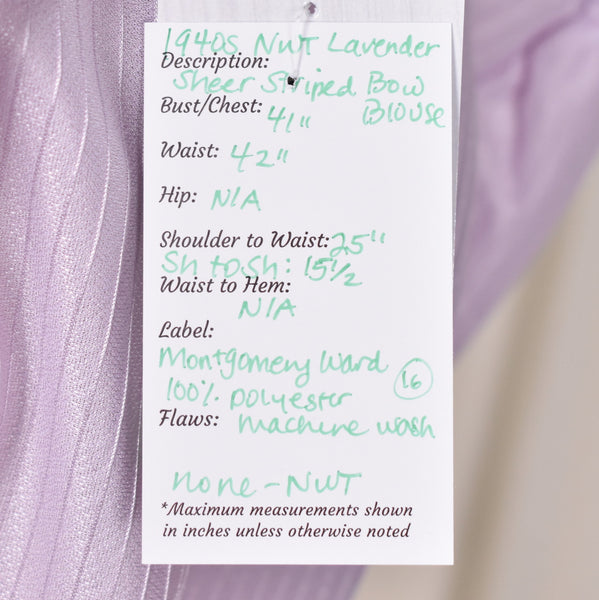 1940s NWT Lavender
Description:
Sheer Striped Bow
Bust/Chest: 41" Blouse
Waist: 42"
Hip: N/A
Shoulder to Waist: 25"
Sh to Sh: 15 1/2
Waist to Hem:
N/A
Label:
Montgomery Ward
100% polyester 16
Flaws: machine wash
none - NWT
*Maximum measurements shown
in inches unless otherwise noted